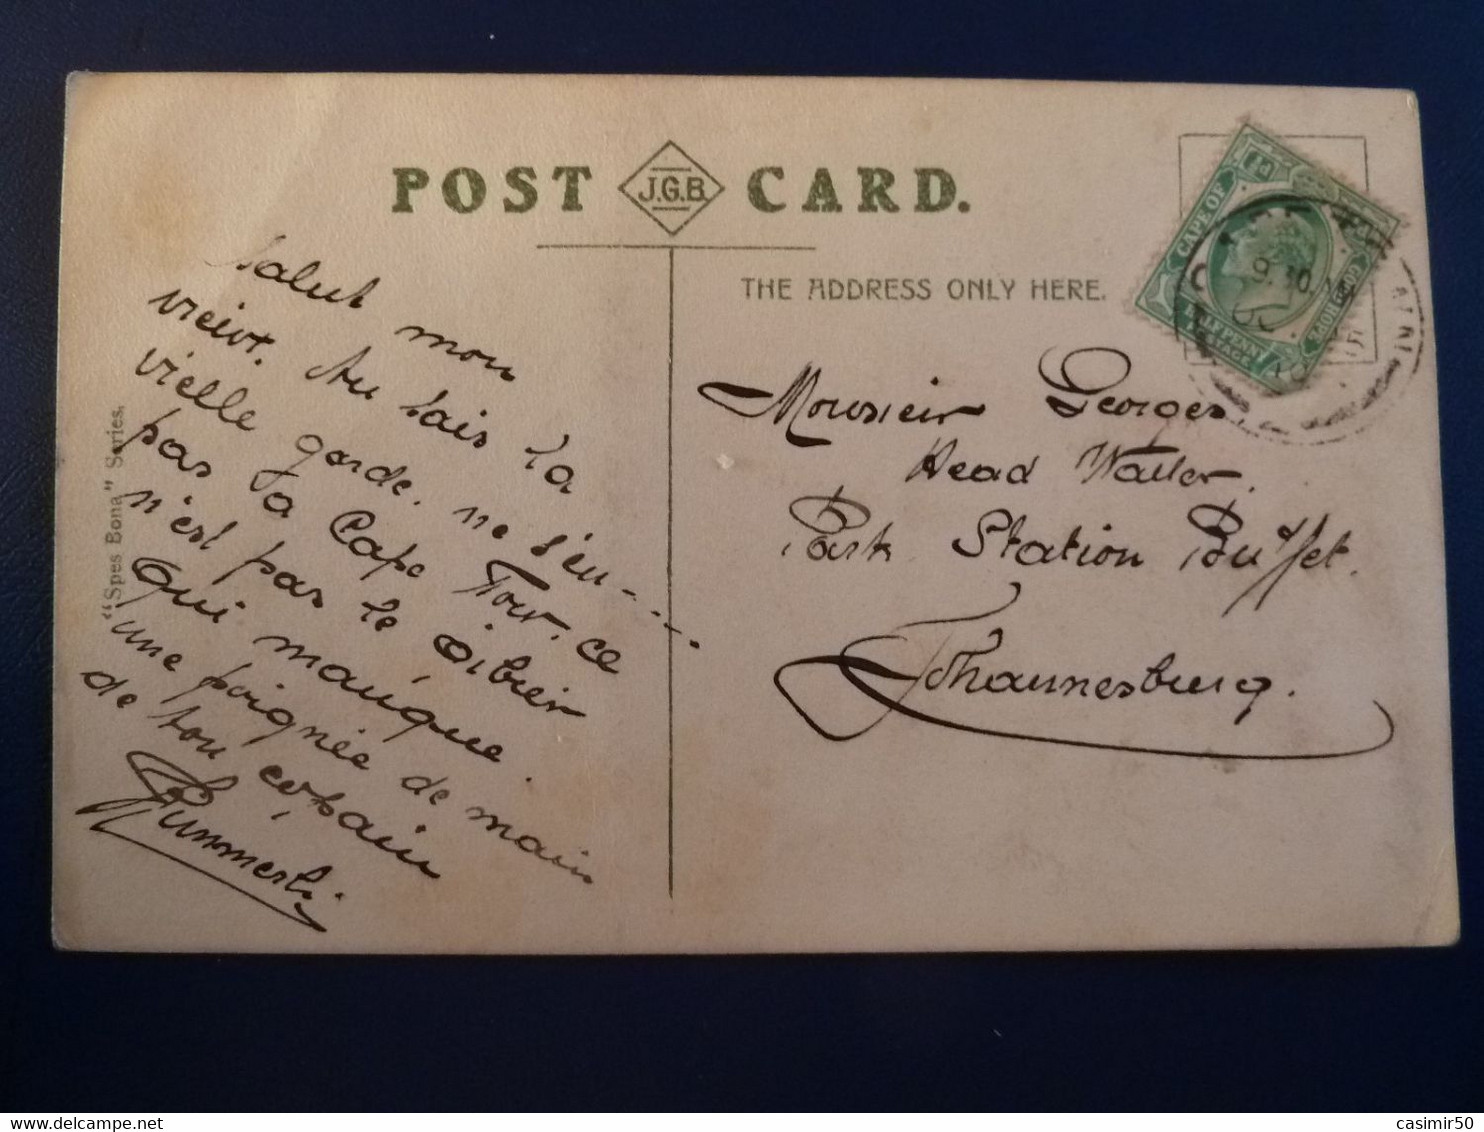 POST J.G.B. CARD.
THE ADDRESS ONLY HERE.
"Spes Bona" Series.
CAPE OF
GOOD HOPE
HALFPENNY
½d
Salut mon
vieux. tu sais la
vielle garde. ne s'en----
pas Ta Cape Tow. ce
n'est pas le Gibier
qui manque.
une poignée de main
de ton copain
Monsieur Georges.
Head Waiter.
Park Station Buffet.
Johannesburg.
casimir50